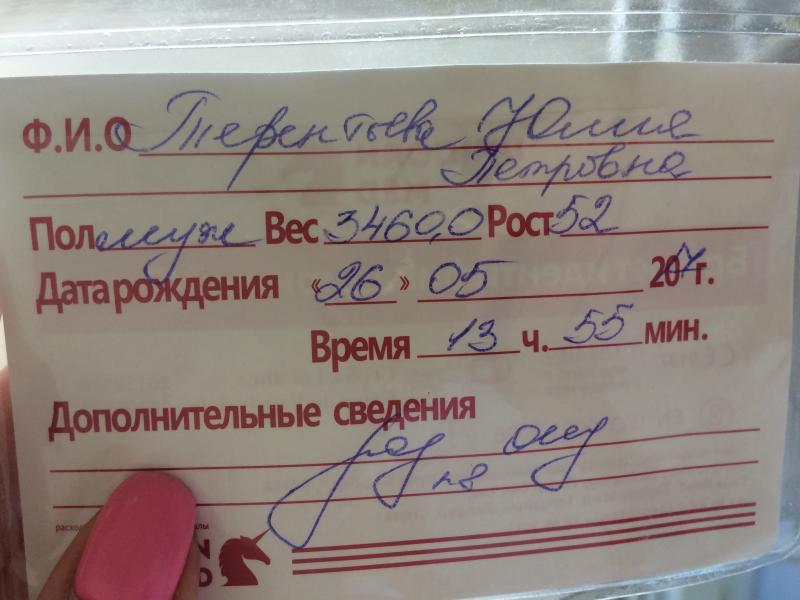 Ф.И.О Терентьева Юлия
Петровна
Пол муж Вес 3460,0 Рост 52
Дата рождения «26» 05 20 г.
Время 13 ч. 55 мин.
Дополнительные сведения